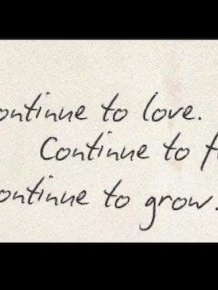 ontinue to love.
Continue to
ontinue to grow.